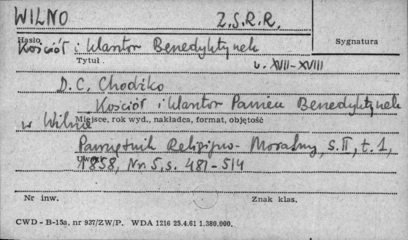 WILNO Z.S.R.R.
Hasło Sygnatura
Kościół i klasztor Benedyktynek
Tytuł w. XVII-XVIII
D.C. Chodźko
Kościół i klasztor Panien Benedyktynek
w Wilnie
Miejsce, rok wyd., nakładca, format, objętość
Pamiętnik Religijno-Moralny, s. II, t. 1,
1858, Nr. 5, s. 481-514
Nr inw. Znak klas.
CWD - B-15a, nr 937/ZW/P. WDA 1216 23.4.61 1.380.000.